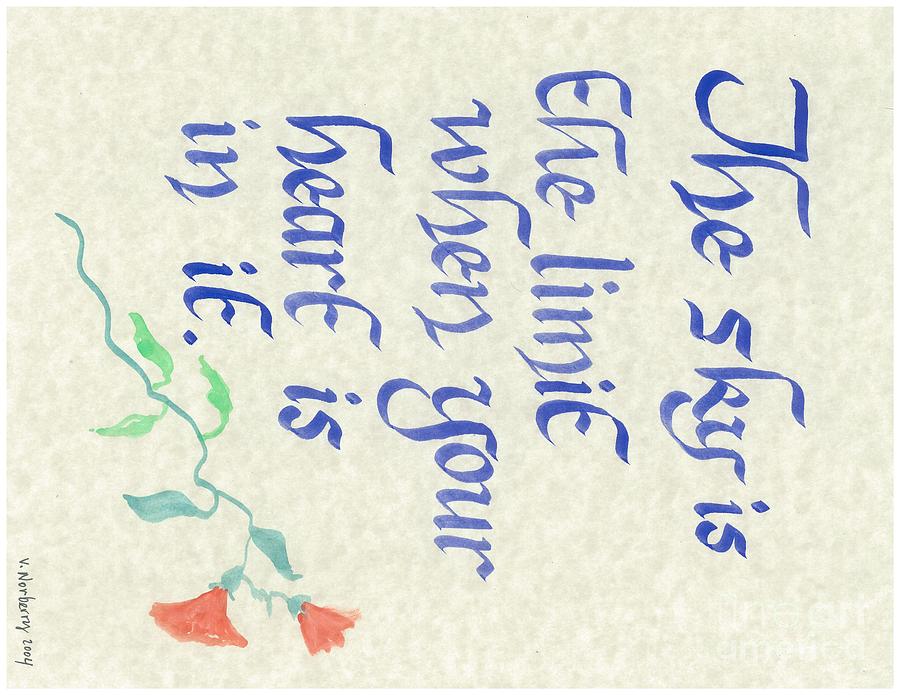 The sky is
the limit
when your
heart is
in it.
V. Norberry 2004
fine art
america